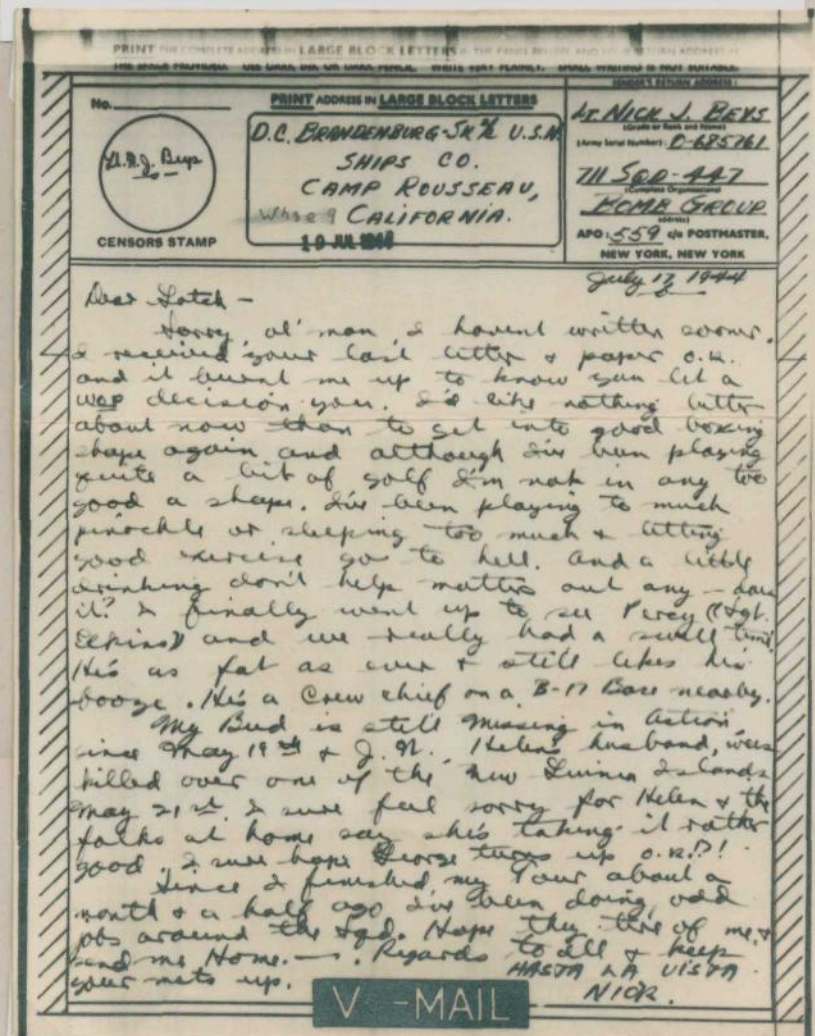 PRINT THE COMPLETE ADDRESS IN LARGE BLOCK LETTERS IN THE PANEL BELOW, AND YOUR RETURN ADDRESS IN
THE SPACE PROVIDED. USE DARK INK OR DARK PENCIL. WRITE VERY PLAINLY. SMALL WRITING IS NOT SUITABLE.
No.
Lt. N.J. Beys
CENSORS STAMP
PRINT ADDRESS IN LARGE BLOCK LETTERS
D.C. BRANDENBURG-SK 2/c U.S.N.
SHIPS CO.
CAMP ROUSSEAU,
CALIFORNIA.
19 JUL 1944
SENDER'S RETURN ADDRESS:
LT. NICK J. BEYS
(Grade or Rank and Name)
(Army Serial Number) O-685761
711 SQD-447
(Complete Organization)
BOMB GROUP
address)
APO: 559 c/o POSTMASTER,
NEW YORK, NEW YORK
July 17, 1944
Dear -
Sorry, ol' man, I havent written sooner.
I received your last letter & paper O.K.
and it burnt me up to know you let a
wop decision you. I'd like nothing better
about now than to get into good boxing
shape again and although I've been playing
quite a bit of golf I'm not in any too
good a shape. I've been playing to much
pinochle or sleeping too much & letting
good exercise go to hell. And a little
drinking don't help matters out any - does
it? I finally went up to see Percy (Sgt.
and we really had a swell time.
He's as fat as ever & still likes his
booze. He's a Crew chief on a B-17 Base nearby.
My Bud is still Missing in Action
since May 19th & J.W. Helen's husband, was
killed over one of the New Guinea Islands
May 21st. I sure feel sorry for Helen & the
folks at home say she's taking it rather
good. I sure hope George turns up O.K.!?!
Since I finished my Tour about a
month & a half ago I've been doing odd
jobs around the Sqd. Hope they tire of me &
send me Home. —. Regards to all & keep
your mets up.
HASTA LA VISTA
NICK.
V - MAIL